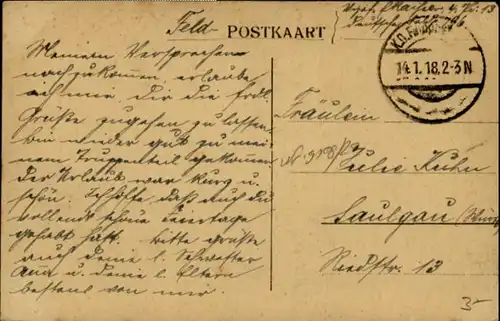 Feld-
POSTKAART
14.1.18.2-3N
Meinem Versprechen
nachzukommen, erlaube
ich mir, Dir die frdl.
Grüße zugehen zu lassen,
bin wieder gut zu mei
nem Truppenteil gekommen
Der Urlaub war kurz u.
schön. Ich hoffe, daß auch Du
schöne Feiertage
gehabt hast. bitte grüße
auch Deine l. Schwester
Anna u. Deine l. Eltern
bestens von mir.
Fräulein
Julie Kuhn
Saulgau
Riedstr. 13
3-